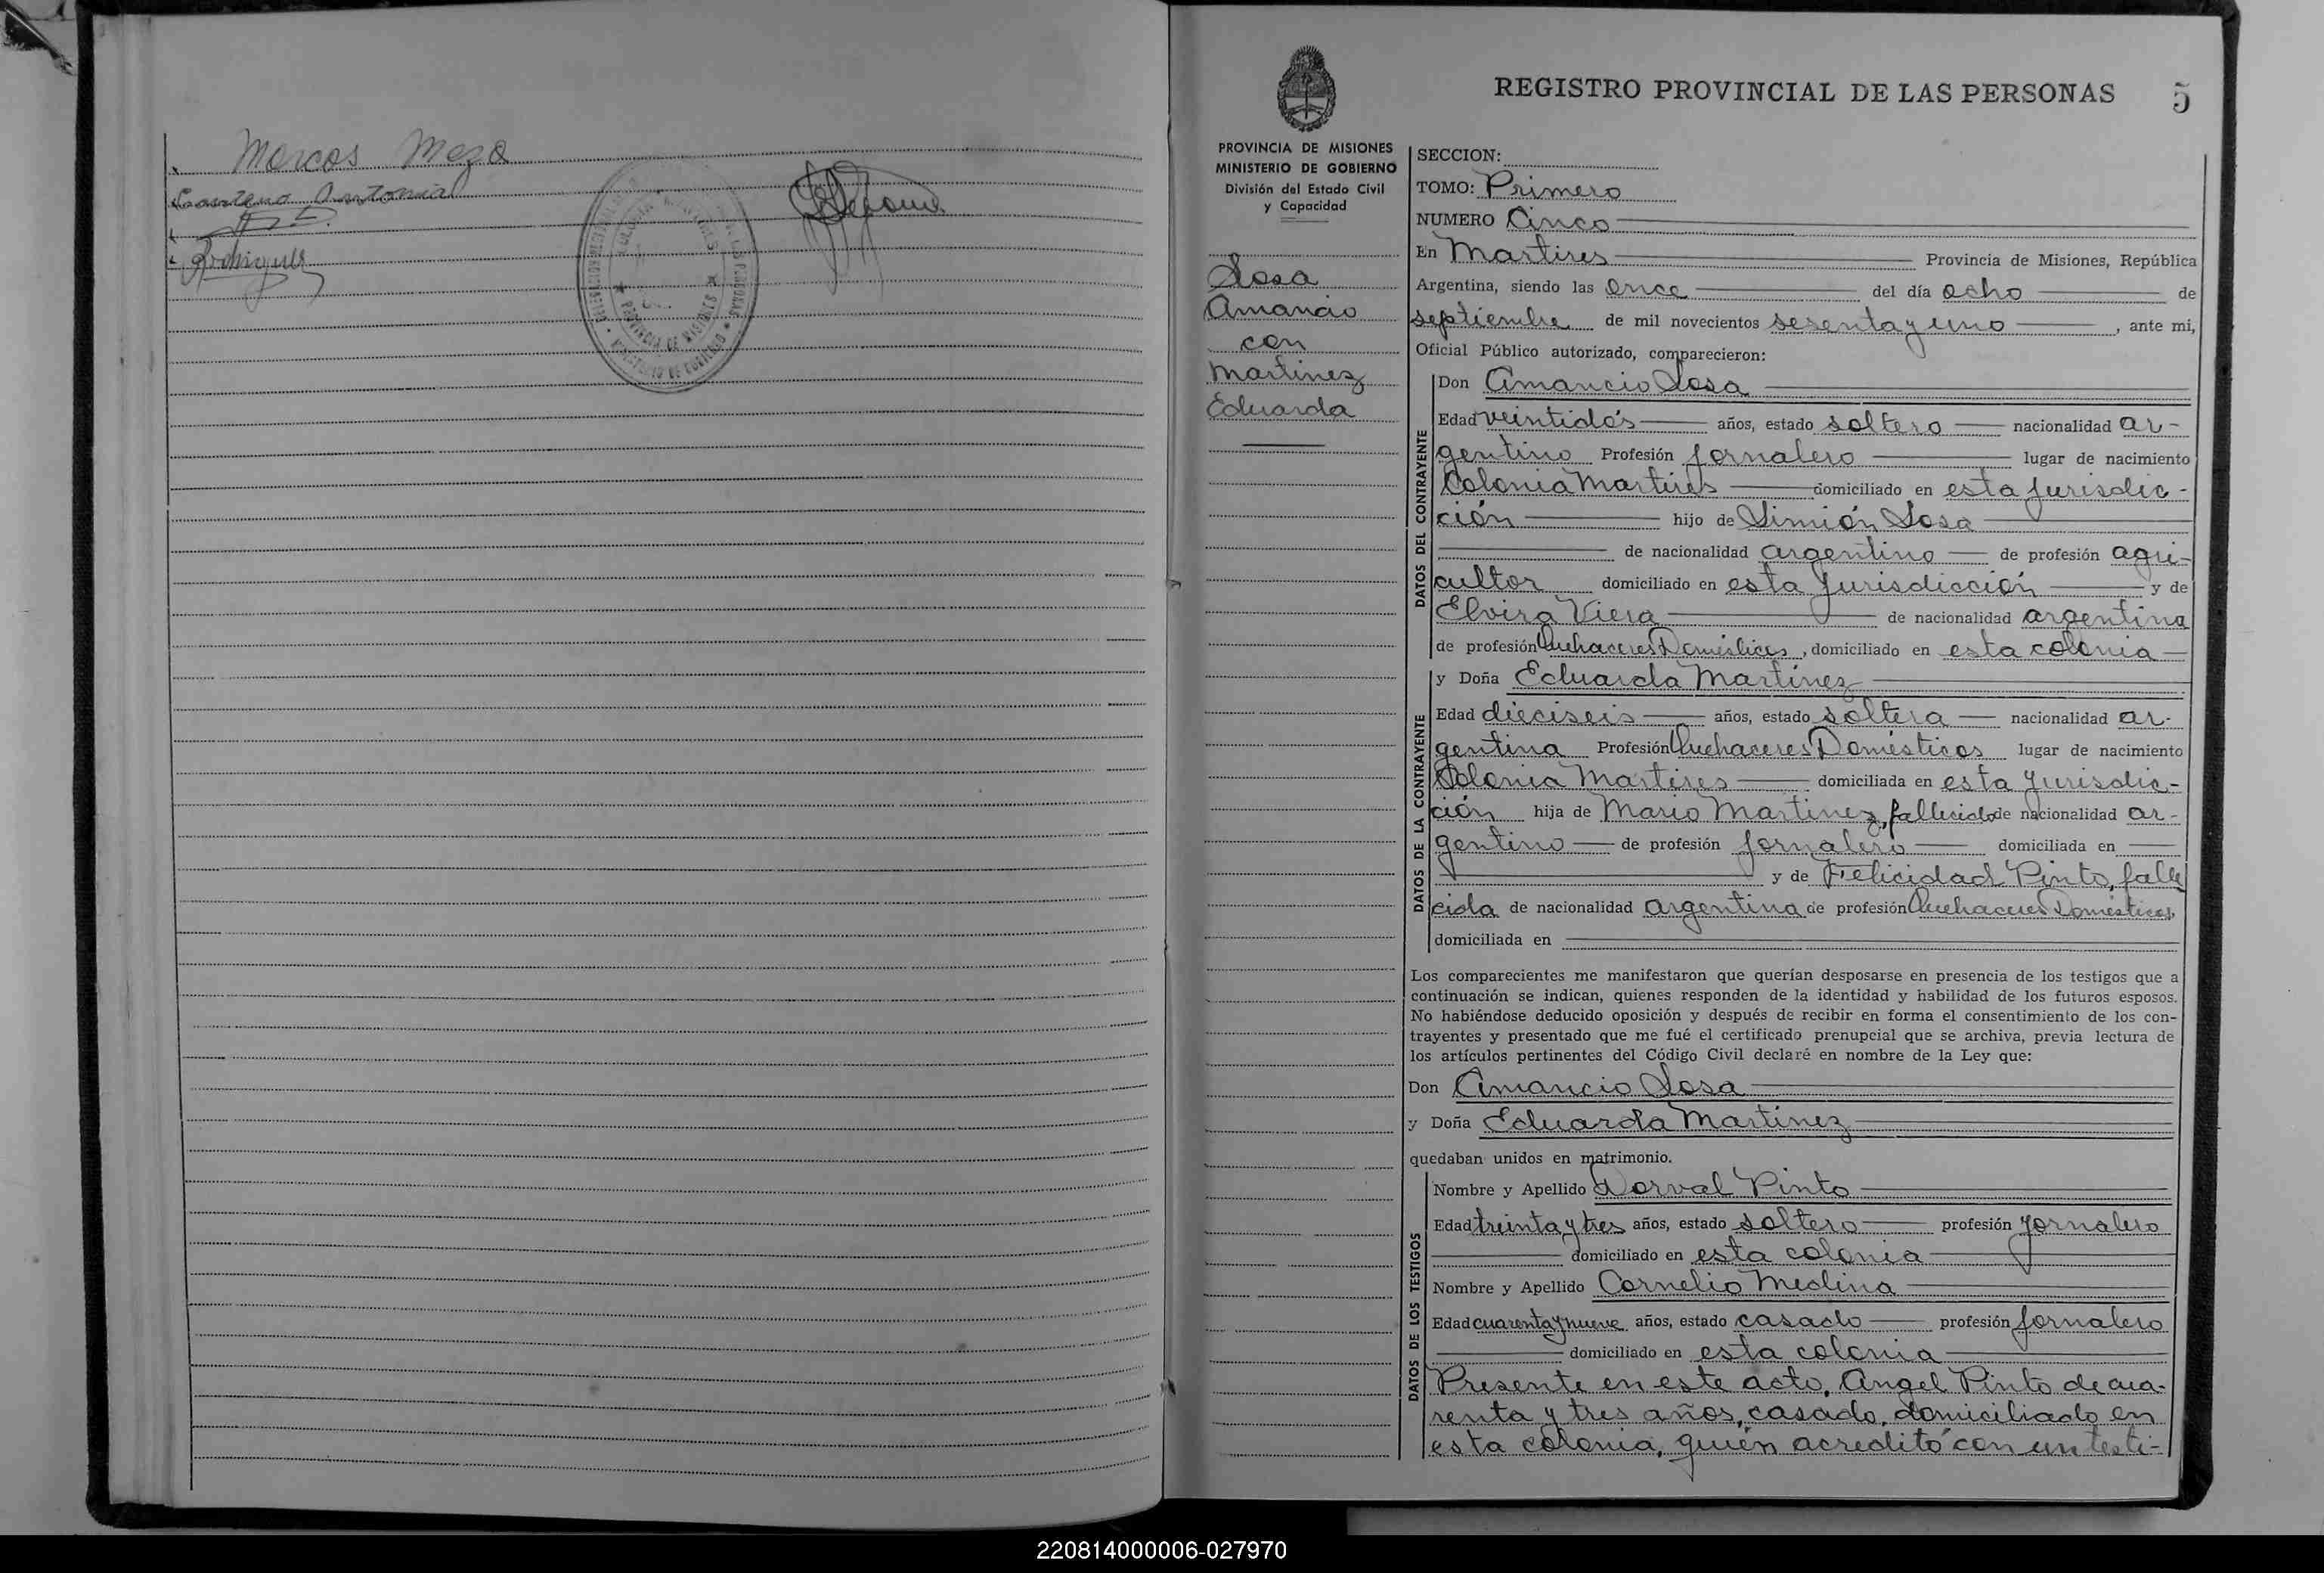 Marcos Meza
Antonia
Rodriguez
PROVINCIA DE MISIONES
MINISTERIO DE GOBIERNO
REGISTRO PROVINCIAL DE LAS PERSONAS 5
PROVINCIA DE MISIONES
MINISTERIO DE GOBIERNO
División del Estado Civil
y Capacidad
Sosa
Amancio
con
Martinez
Eduarda
SECCION:
TOMO: Primero
NUMERO Cinco
En Martires Provincia de Misiones, República
Argentina, siendo las once del día ocho de
septiembre de mil novecientos sesenta y uno, ante mi,
Oficial Público autorizado, comparecieron:
DATOS DEL CONTRAYENTE
Don Amancio Sosa
Edad veintidós años, estado soltero nacionalidad ar-
gentino Profesión jornalero lugar de nacimiento
Colonia Martires domiciliado en esta jurisdic-
ción hijo de Simión Sosa
de nacionalidad argentino de profesión agri-
cultor domiciliado en esta jurisdicción y de
Elvira Viera de nacionalidad argentina
de profesión Quehaceres Domésticos, domiciliado en esta colonia
DATOS DE LA CONTRAYENTE
y Doña Eduarda Martinez
Edad dieciseis años, estado soltera nacionalidad ar-
gentina Profesión Quehaceres Domésticos lugar de nacimiento
Colonia Martires domiciliada en esta jurisdic-
ción hija de Mario Martinez, fallecido de nacionalidad ar-
gentino de profesión jornalero domiciliada en
y de Felicidad Pinto, falle
cida de nacionalidad argentina de profesión Quehaceres Domésticos,
domiciliada en
Los comparecientes me manifestaron que querían desposarse en presencia de los testigos que a
continuación se indican, quienes responden de la identidad y habilidad de los futuros esposos.
No habiéndose deducido oposición y después de recibir en forma el consentimiento de los con-
trayentes y presentado que me fué el certificado prenupcial que se archiva, previa lectura de
los artículos pertinentes del Código Civil declaré en nombre de la Ley que:
Don Amancio Sosa
y Doña Eduarda Martinez
quedaban unidos en matrimonio.
DATOS DE LOS TESTIGOS
Nombre y Apellido Dorval Pinto
Edad treinta y tres años, estado soltero profesión jornalero
domiciliado en esta colonia
Nombre y Apellido Cornelio Medina
Edad cuarenta y nueve años, estado casado profesión jornalero
domiciliado en esta colonia
Presente en este acto, Angel Pinto de cua-
renta y tres años, casado, domiciliado en
esta colonia, quién acreditó con un testi-
220814000006-027970